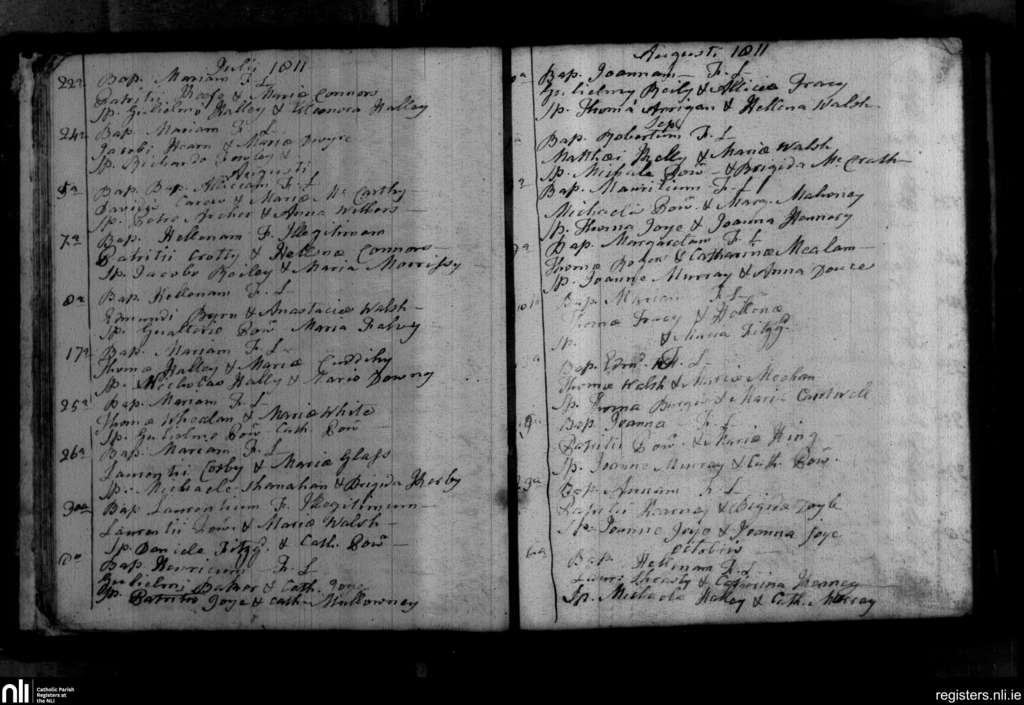 July 1811
22a Bap. Mariam F. L
Patritii Keefe & Maria Connors
Sp. Gulielmo Halley & Elenora Halley
24a Bap. Mariam F. L
Jacobi Hearn & Mariæ Dwyre
Sp. Richardo &
Augusti
5a Bap. Bap. Alliciam F. L
Davidis Carew & Mariæ Mc Carthy
Sp. Petro Archer & Anna Withers
7a Bap. Hellenam F. Illegitimam
Patritii Crotty & Hellenæ Connors
Sp. Jacobo Bailey & Maria Morrissy
8a Bap. Hellenam F. L
Edmundi Byrn & Anastaciæ Walsh
Sp. Gualtero Bow Maria Fahvy
17a Bap. Mariam F. L
Thomæ Halley & Mariæ Cuddihy
Sp. Nicholao Halley & Maria Downy
25a Bap. Mariam F. L
Thomæ Whealan & Mariæ White
Sp. Gulielmo Bow Cath. Bow
26a Bap. Mariam F. L
Laurentii Corby & Mariæ Glass
Sp. Michaele Shanahan & Brigida Kerby
30a Bap. Laurentium F. Illegitimum
Laurentii & Mariæ Walsh
Sp. Daniele Fitzgd. & Cath. Bow
Bap. Henricum F. L
Gulielmi Baker & Cath. Joye
Sp. Patritio Joye & Cath. Mullowney
August. 1811
Bap. Joannam F. L
Gulielmi Reily & Alliciæ Tracy
Sp. Thoma Arrigan & Hellena Walsh
Sepr
Bap. Robertum F. L
Matthæi Kelly & Mariæ Walsh
Sp. Michale Bow & Brigida McCrath
Bap. Mauritium F. L
Michaelis Bow & Marg. Mahoney
Sp. Thoma Joye & Joanna Hennery
Bap. Margaretam F. L
Thomæ & Catharinæ Mealam
Sp. Joanne Murray & Anna Power
Bap. Mariam F. L
Thomæ Tracy & Hellenæ
Sp. & Maria Fitzgd.
Bap. Edmd. F. L
Thomæ Walsh & Mariæ Meahan
Sp. Thoma & Maria Cantwell
Bap. Joanna F. L
Patritii Bow & Mariæ King
Sp. Joanne Murray & Cath. Bow
Bap. Annam F. L
Patritii Kearney & Brigidæ Doyle
Sp. Joanne Joye & Joanna Joye
Octobris
6a Bap. Hellenam F. L
& Catharina Kearney
Sp. Michaele Halley & Cath. Murray
nli
Catholic Parish
Registers at
the NLI
registers.nli.ie